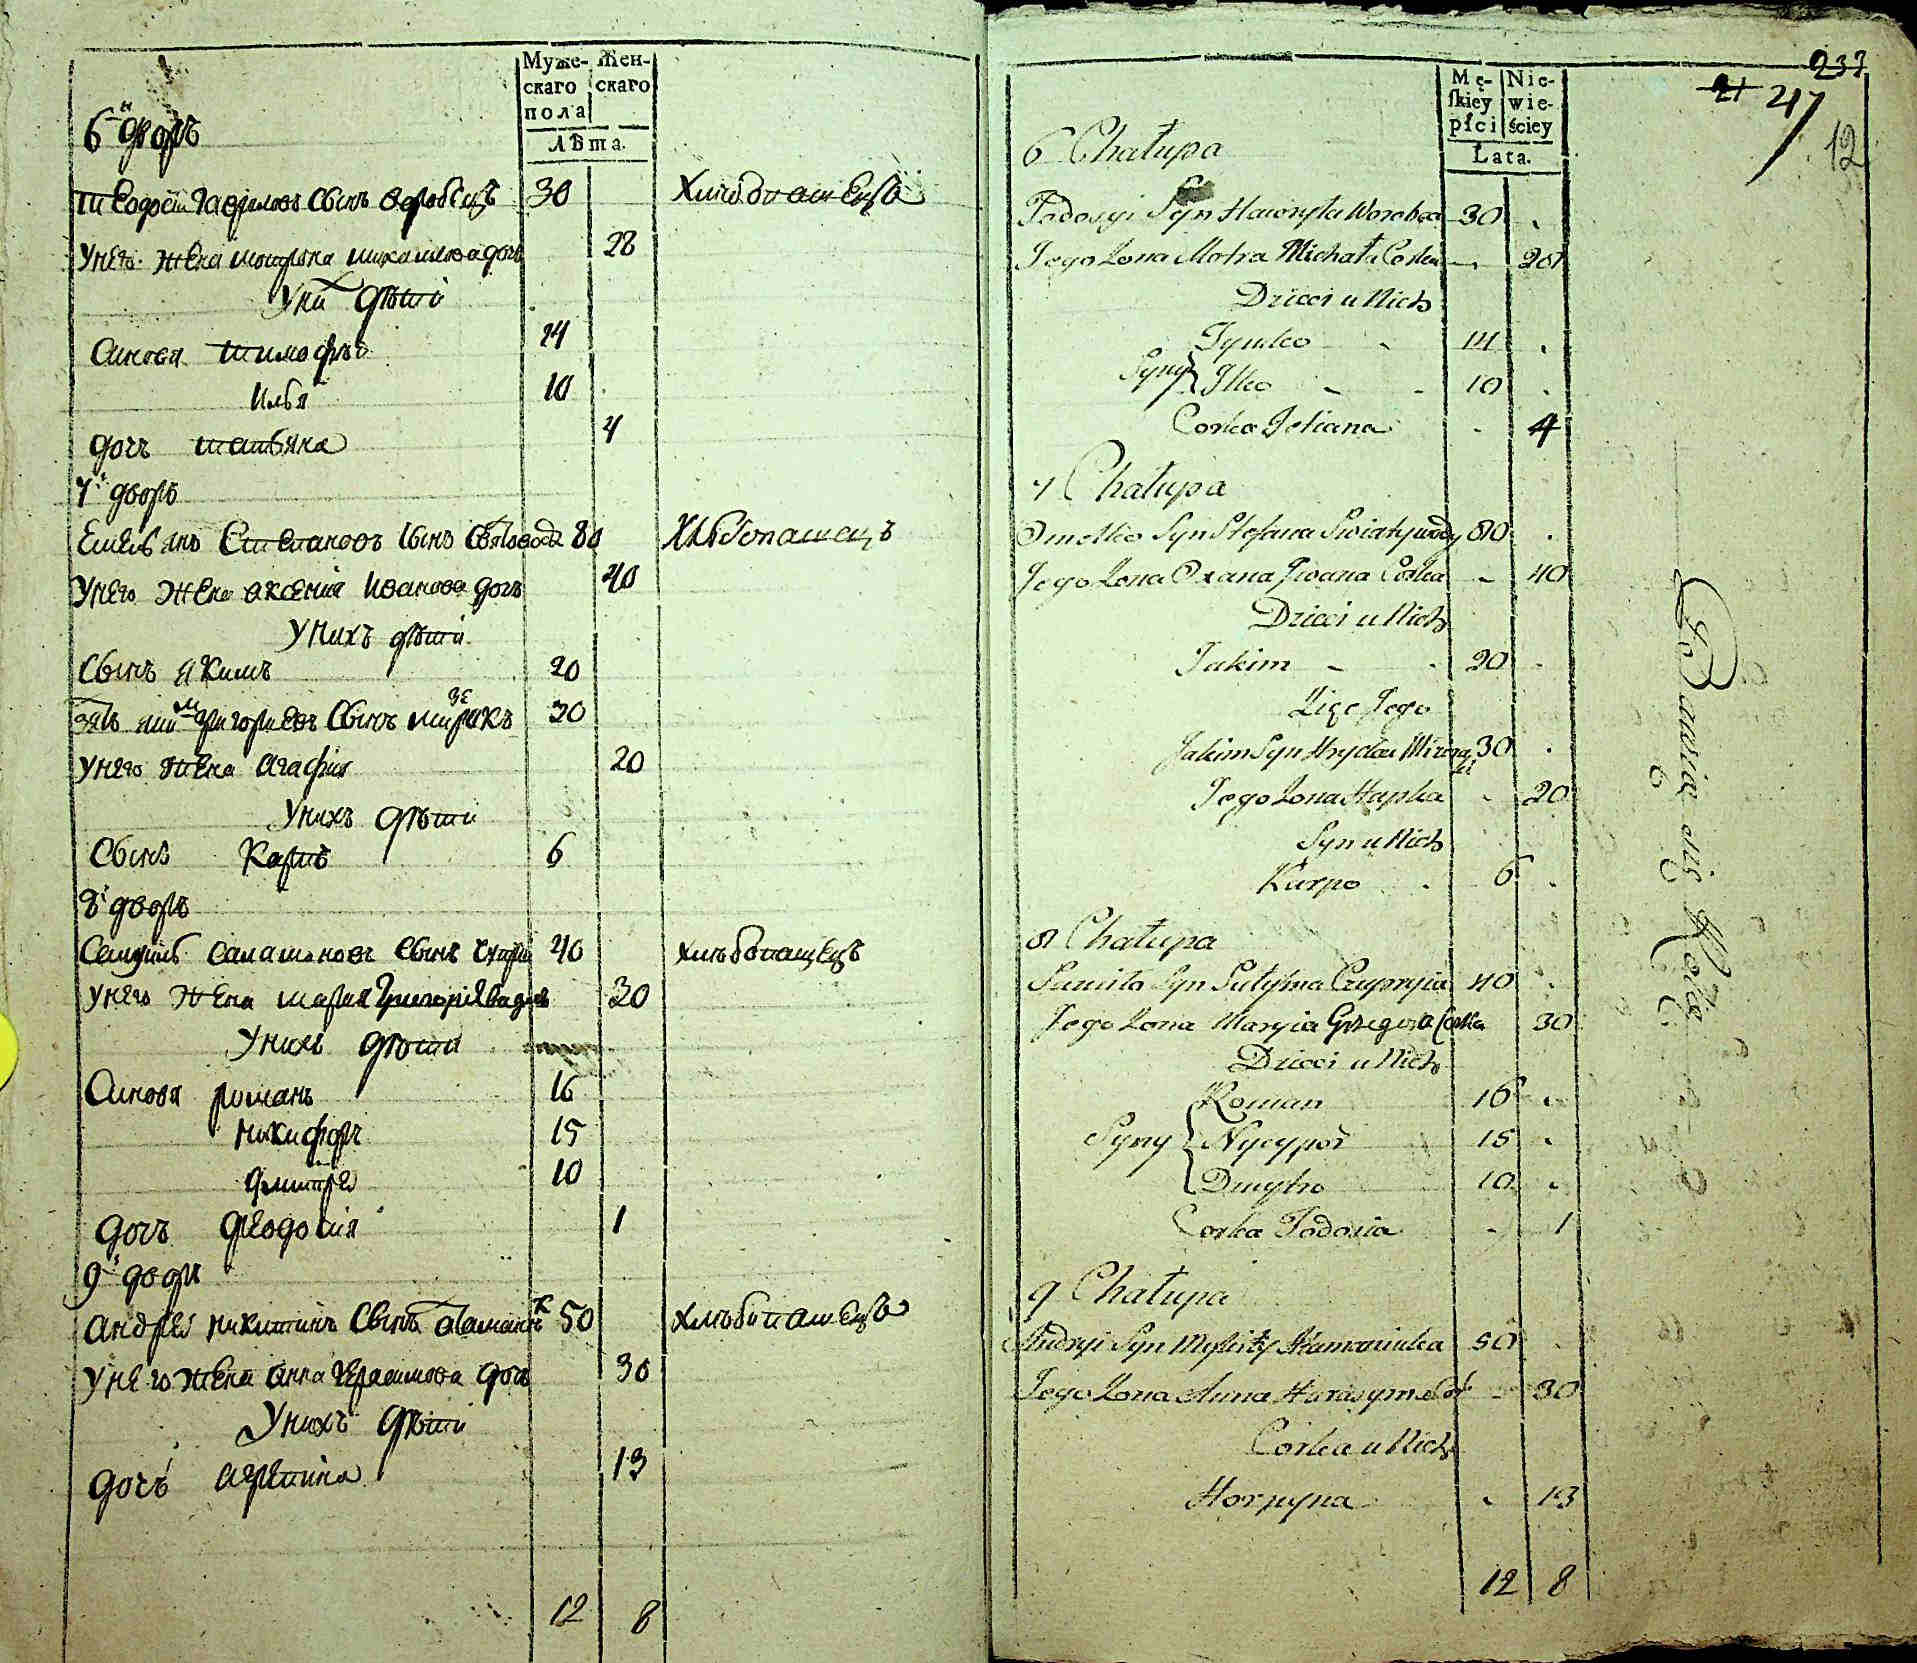 Муже-
скаго
пола
Жен-
скаго
Лѣта.
6й дворъ
Теодосій Гавриловъ Сынъ Воробецъ 30 Хлѣбопашецъ
Унего Жена мотрона михаилова дочь 28
Уни дѣти
Синовя тимофѣй 14
Илья 10
дочь татьяна 4
7й дворъ
Емельянъ Степановъ Сынъ 80 Хлѣбопашецъ
Унего Жена аксенія Иванова дочь 40
Унихъ дѣти
Сынъ якимъ 20
Зять григориевъ Сынъ 30
Унего Жена Агафия 20
Унихъ дѣти
Сынъ Карпъ 6
8й дворъ
Самуилъ Сынъ 40 хлѣбопашецъ
Унего Жена мария григориева дочь 30
Унихъ дѣти
Синовя романъ 16
никифоръ 15
дмитрей 10
дочь феодосия 1
9й дворъ
Андрей никитинъ Сынъ атаманюкъ 50 хлѣбопашецъ
Унего Жена анна герасимова дочь 30
Унихъ дѣти
дочь 13
12 8
237
21 217
12
Mę-
skiey
płci
Nie-
wie-
ściey
Lata.
6 Chałupa
Todosyi Syn Hawryła Worobca 30
Jego Zona Motra Michała Corka 28
Dzieci u Nich
Tymko 14
Syny Ilko 10
Corka Teliana 4
7 Chałupa
Omelko Syn Stefana Swiatywody 80
Jego Zona Oxana Jwana Corka 40
Dzieci u Nich
Jakim 20
Zięc Jego
Jakim Syn Hryćka 30
Jego Zona Hapka 20
Syn u Nich
Karpo 6
8 Chałupa
Samiło Syn Czupryia 40
Jego Zona Maryia Grzegorza Corka 30
Dzieci u Nich
Roman 16
Syny Nyczypor 15
Dmytro 10
Corka Todosia 1
9 Chałupa
Andryi Syn Mykity Atamaniuka 50
Jego Zona Anna Harasyma Cor 30
Corka u Nich
Horpyna 13
12 8